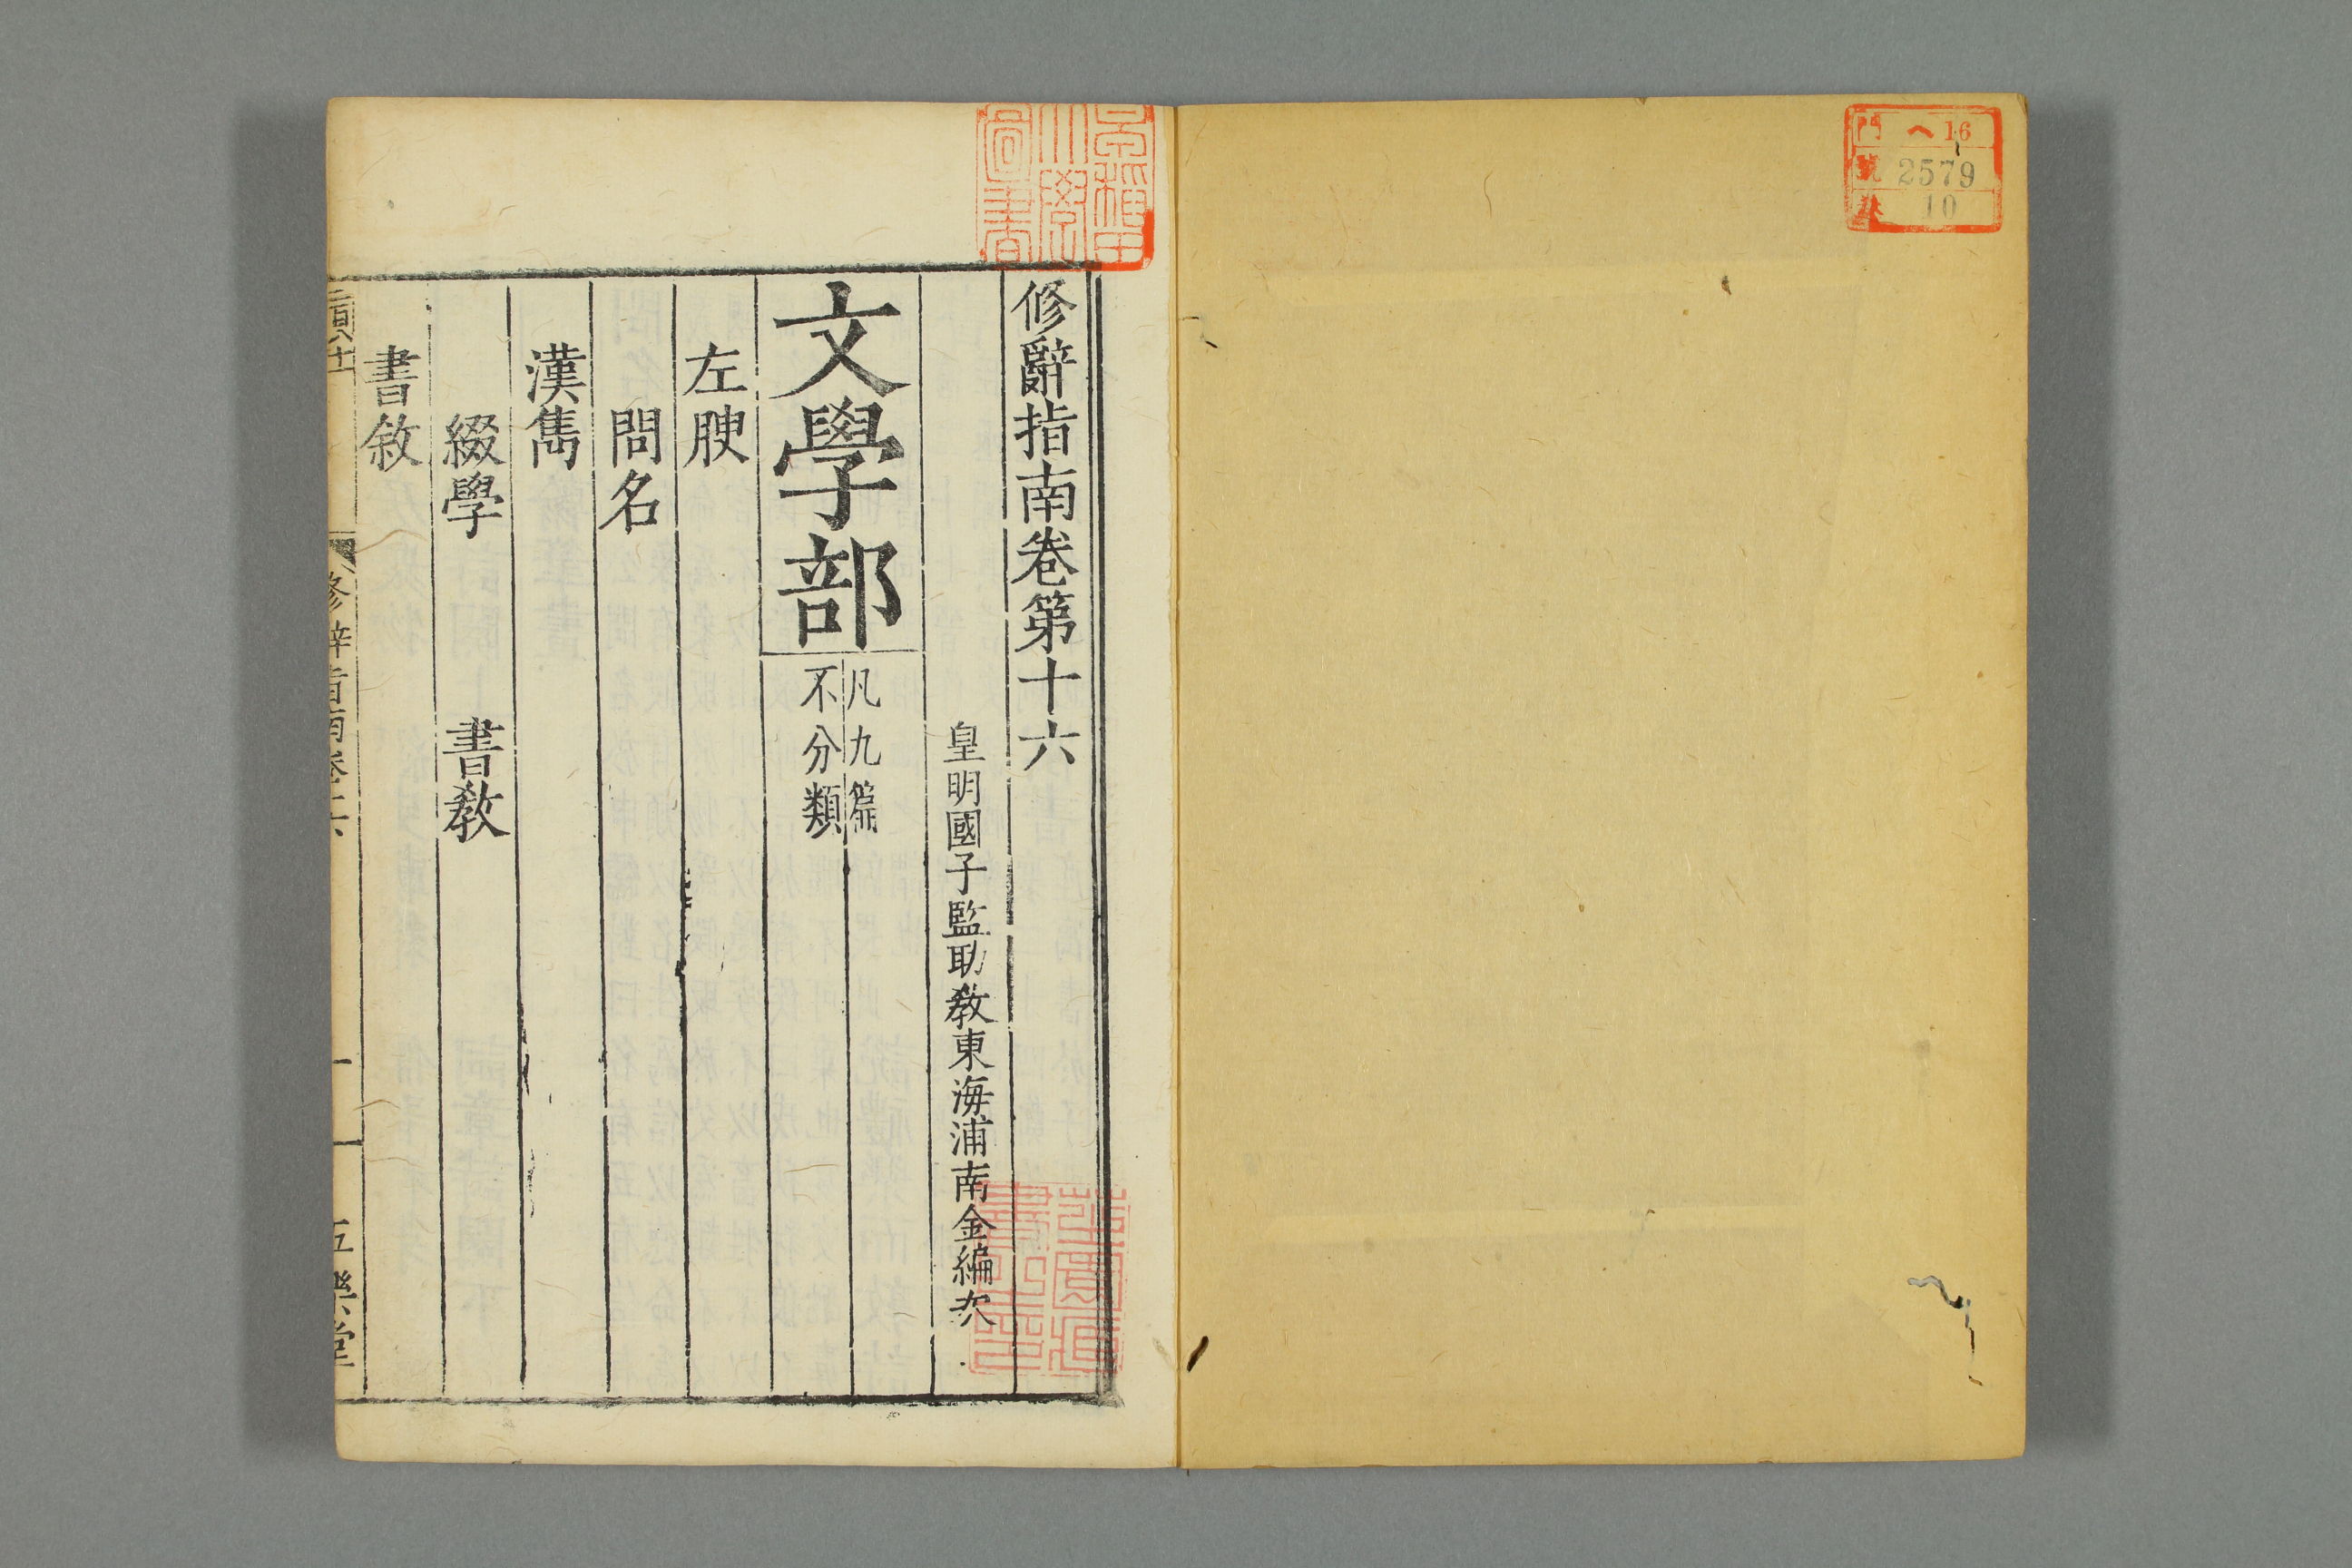 門 ヘ16
號 2579
卷 10
早稲田
大學
圖書
修辭指南卷第十六
皇明國子監助教東海浦南金編次
文學部
凡九篇
不分類
左腴
問名
漢雋
綴學 書教
書敘
修辭指南卷十六
一
五樂堂